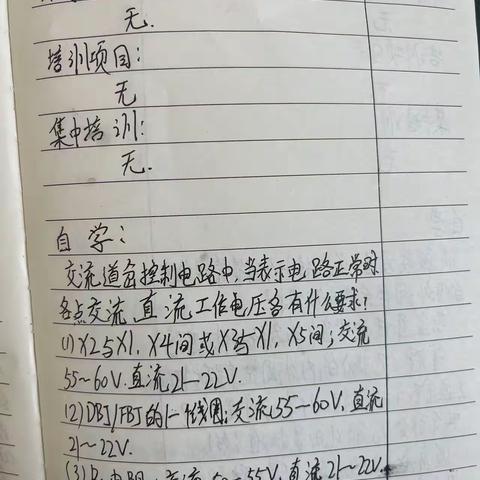 无.
培训项目:
无
集中培训:
无.
自学:
交流道岔控制电路中,当表示电路正常时
各点交流、直流工作电压各有什么要求?
(1)X2与X1、X4间或X3与X1、X5间;交流
55~60V.直流21~22V.
(2)DBJ/FBJ的1-4线圈;交流55~60V、直流
21~22V.
(3)R 电阻:交流50~55V、直流21~22V